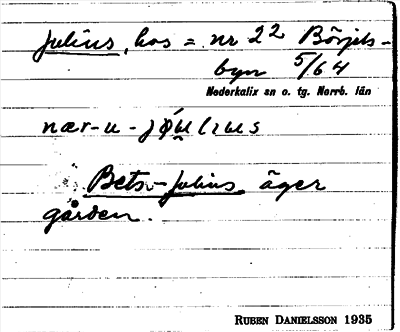 Julius, hos = nr 22 Börjels-
byn 5/64
Nederkalix sn o. tg. Norrb. län
nær-u-jóu̯lıus
Bets-Julius äger
gården.
RUBEN DANIELSSON 1935